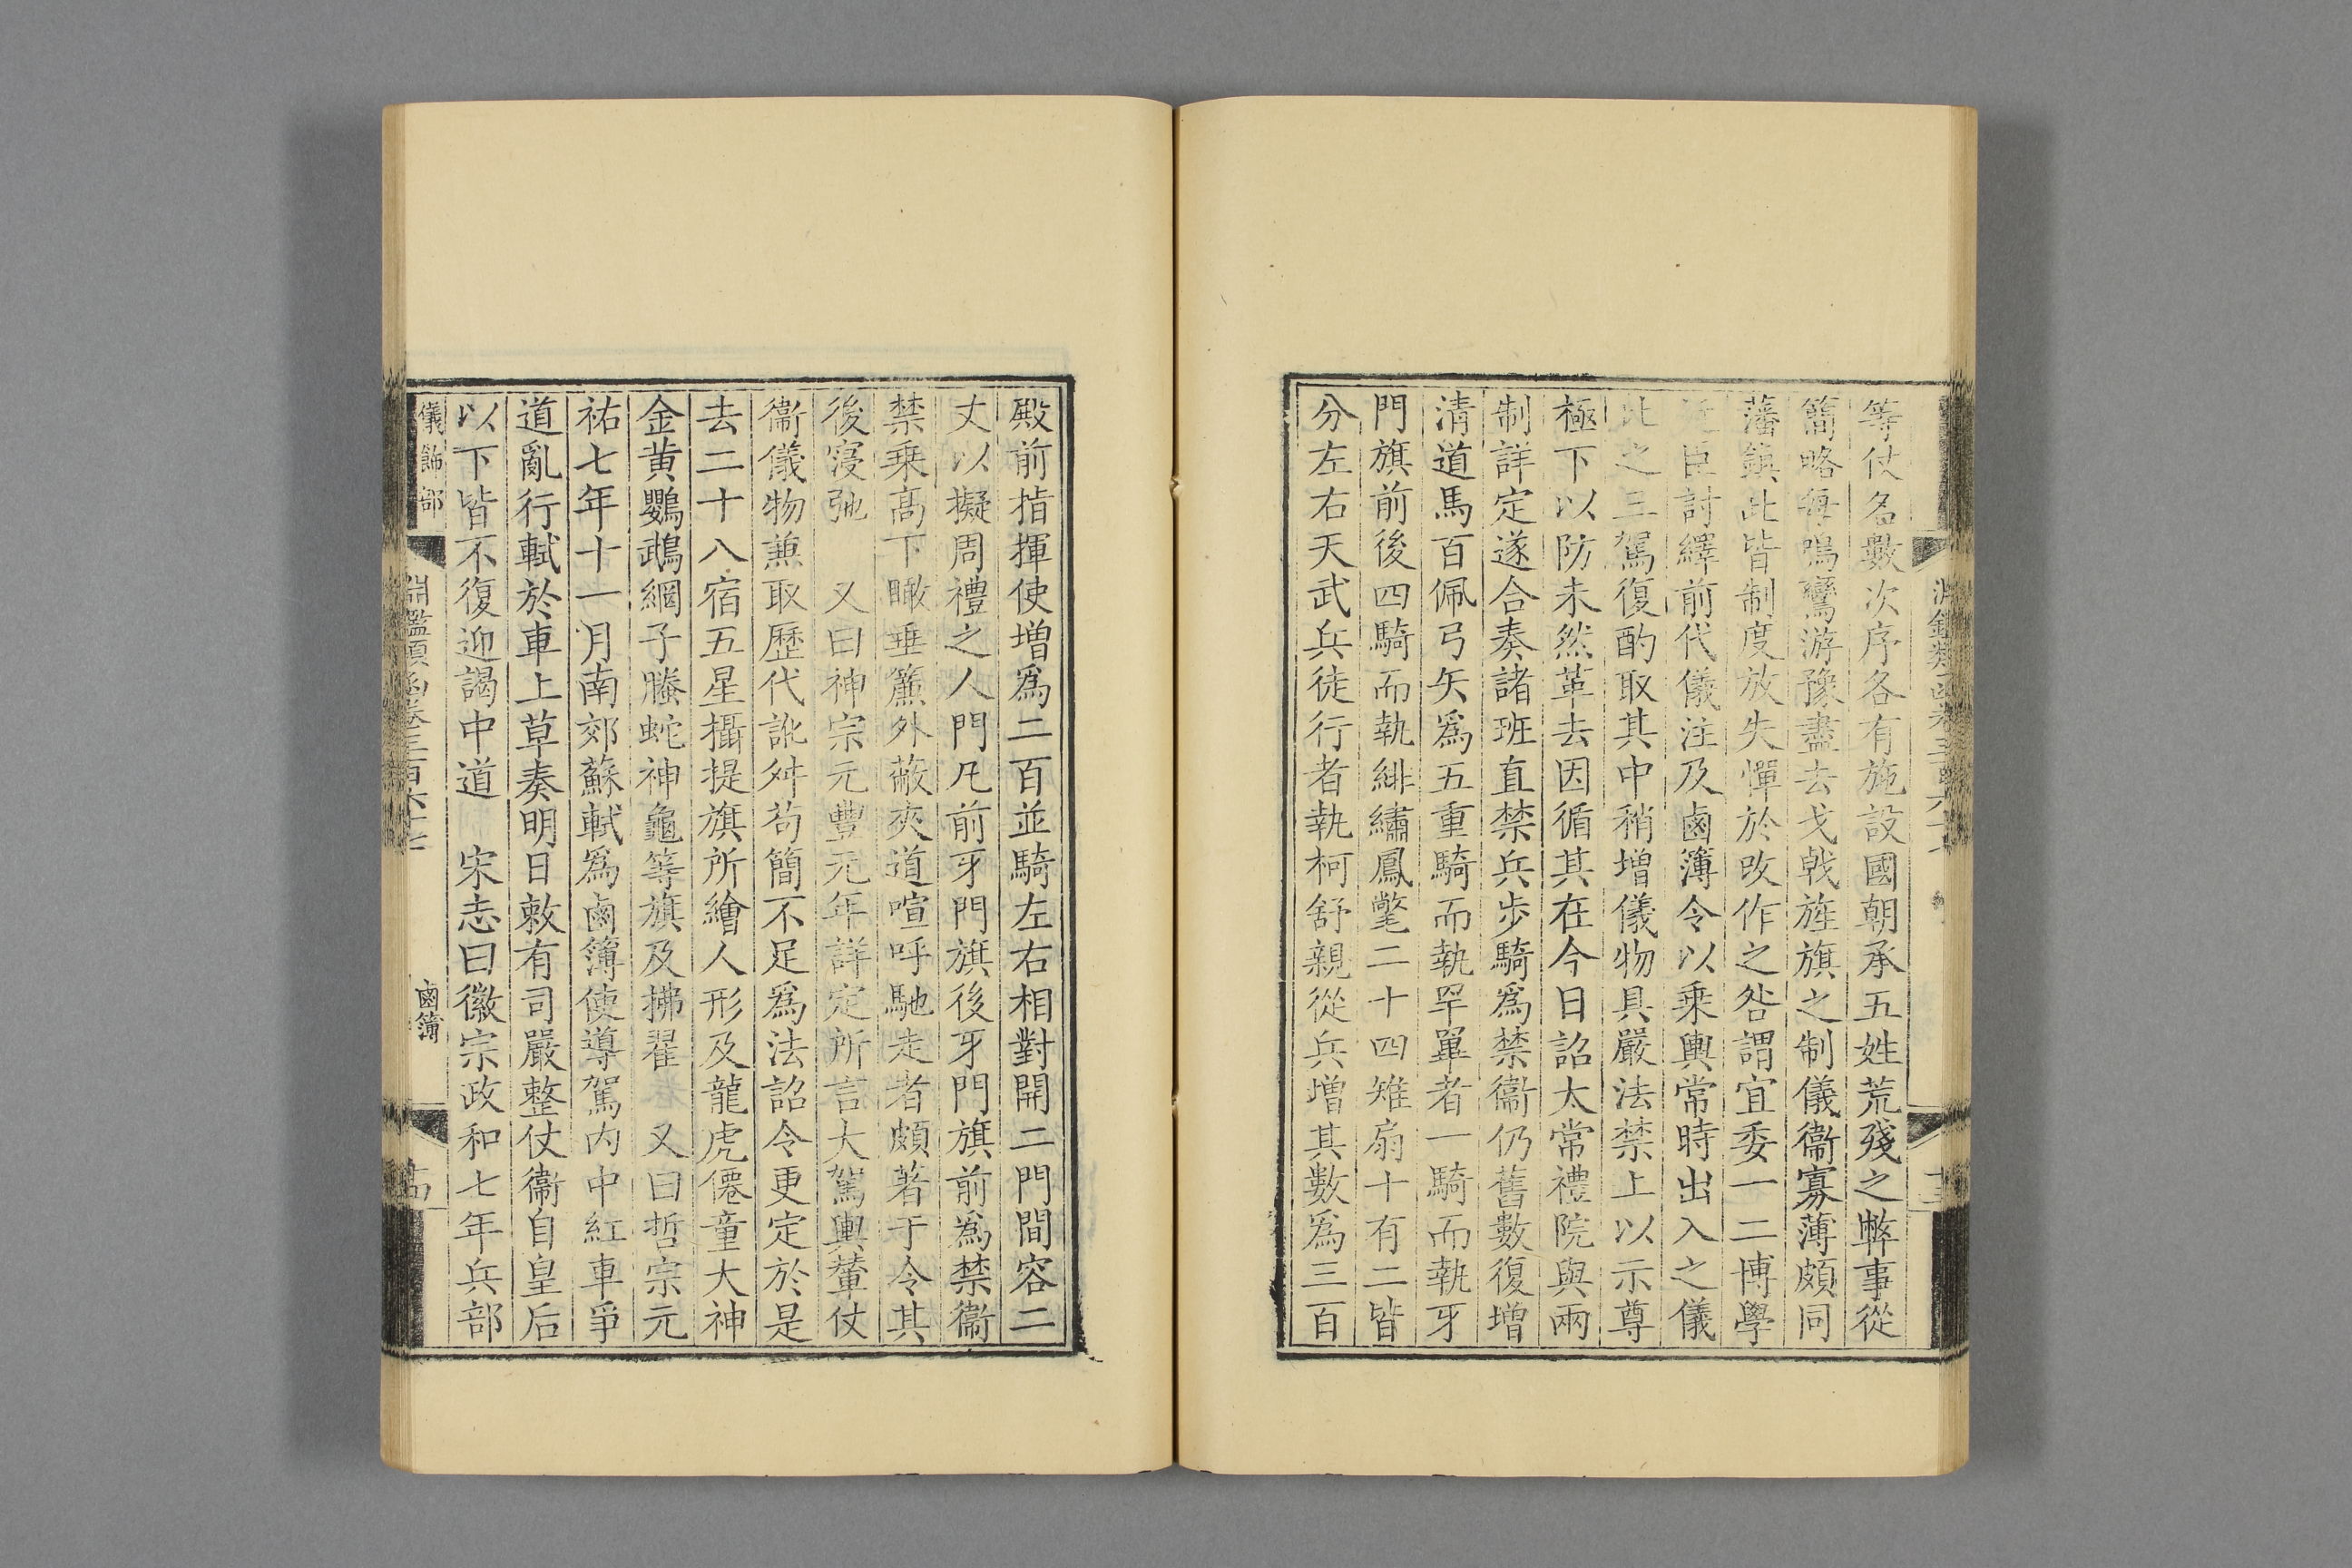 等仗名數次序各有施設國朝承五姓荒殘之弊事從
簡略每鳴鸞游豫盡去戈戟旌旗之制儀衞寡薄頗同
藩鎮此皆制度放失憚於改作之咎謂宜委一二博學
近臣討繹前代儀注及鹵簿令以乘輿常時出入之儀
比之三駕復酌取其中稍增儀物具嚴法禁上以示尊
極下以防未然革去因循其在今日詔太常禮院與兩
制詳定遂合奏諸班直禁兵步騎爲禁衞仍舊數復增
清道馬百佩弓矢爲五重騎而執罕罼者一騎而執牙
門旗前後四騎而執緋繡鳳氅二十四雉扇十有二皆
分左右天武兵徒行者執柯舒親從兵增其數爲三百
殿前指揮使增爲二百並騎左右相對開二門間容二
丈以擬周禮之人門凡前牙門旗後牙門旗前爲禁衞
禁乘高下瞰垂簾外蔽夾道喧呼馳走者頗著于令其
後寖弛　又曰神宗元豐元年詳定所言大駕輿輦仗
衞儀物兼取歷代訛舛苟簡不足爲法詔令更定於是
去二十八宿五星攝提旗所繪人形及龍虎僊童大神
金黃鸚鵡綱子螣蛇神龜等旗及拂翟　又曰哲宗元
祐七年十一月南郊蘇軾爲鹵簿使導駕內中紅車爭
道亂行軾於車上草奏明日敕有司嚴整仗衞自皇后
以下皆不復迎謁中道　宋志曰徽宗政和七年兵部
儀飾部　淵鑑類函卷三百六十七　鹵簿　十四